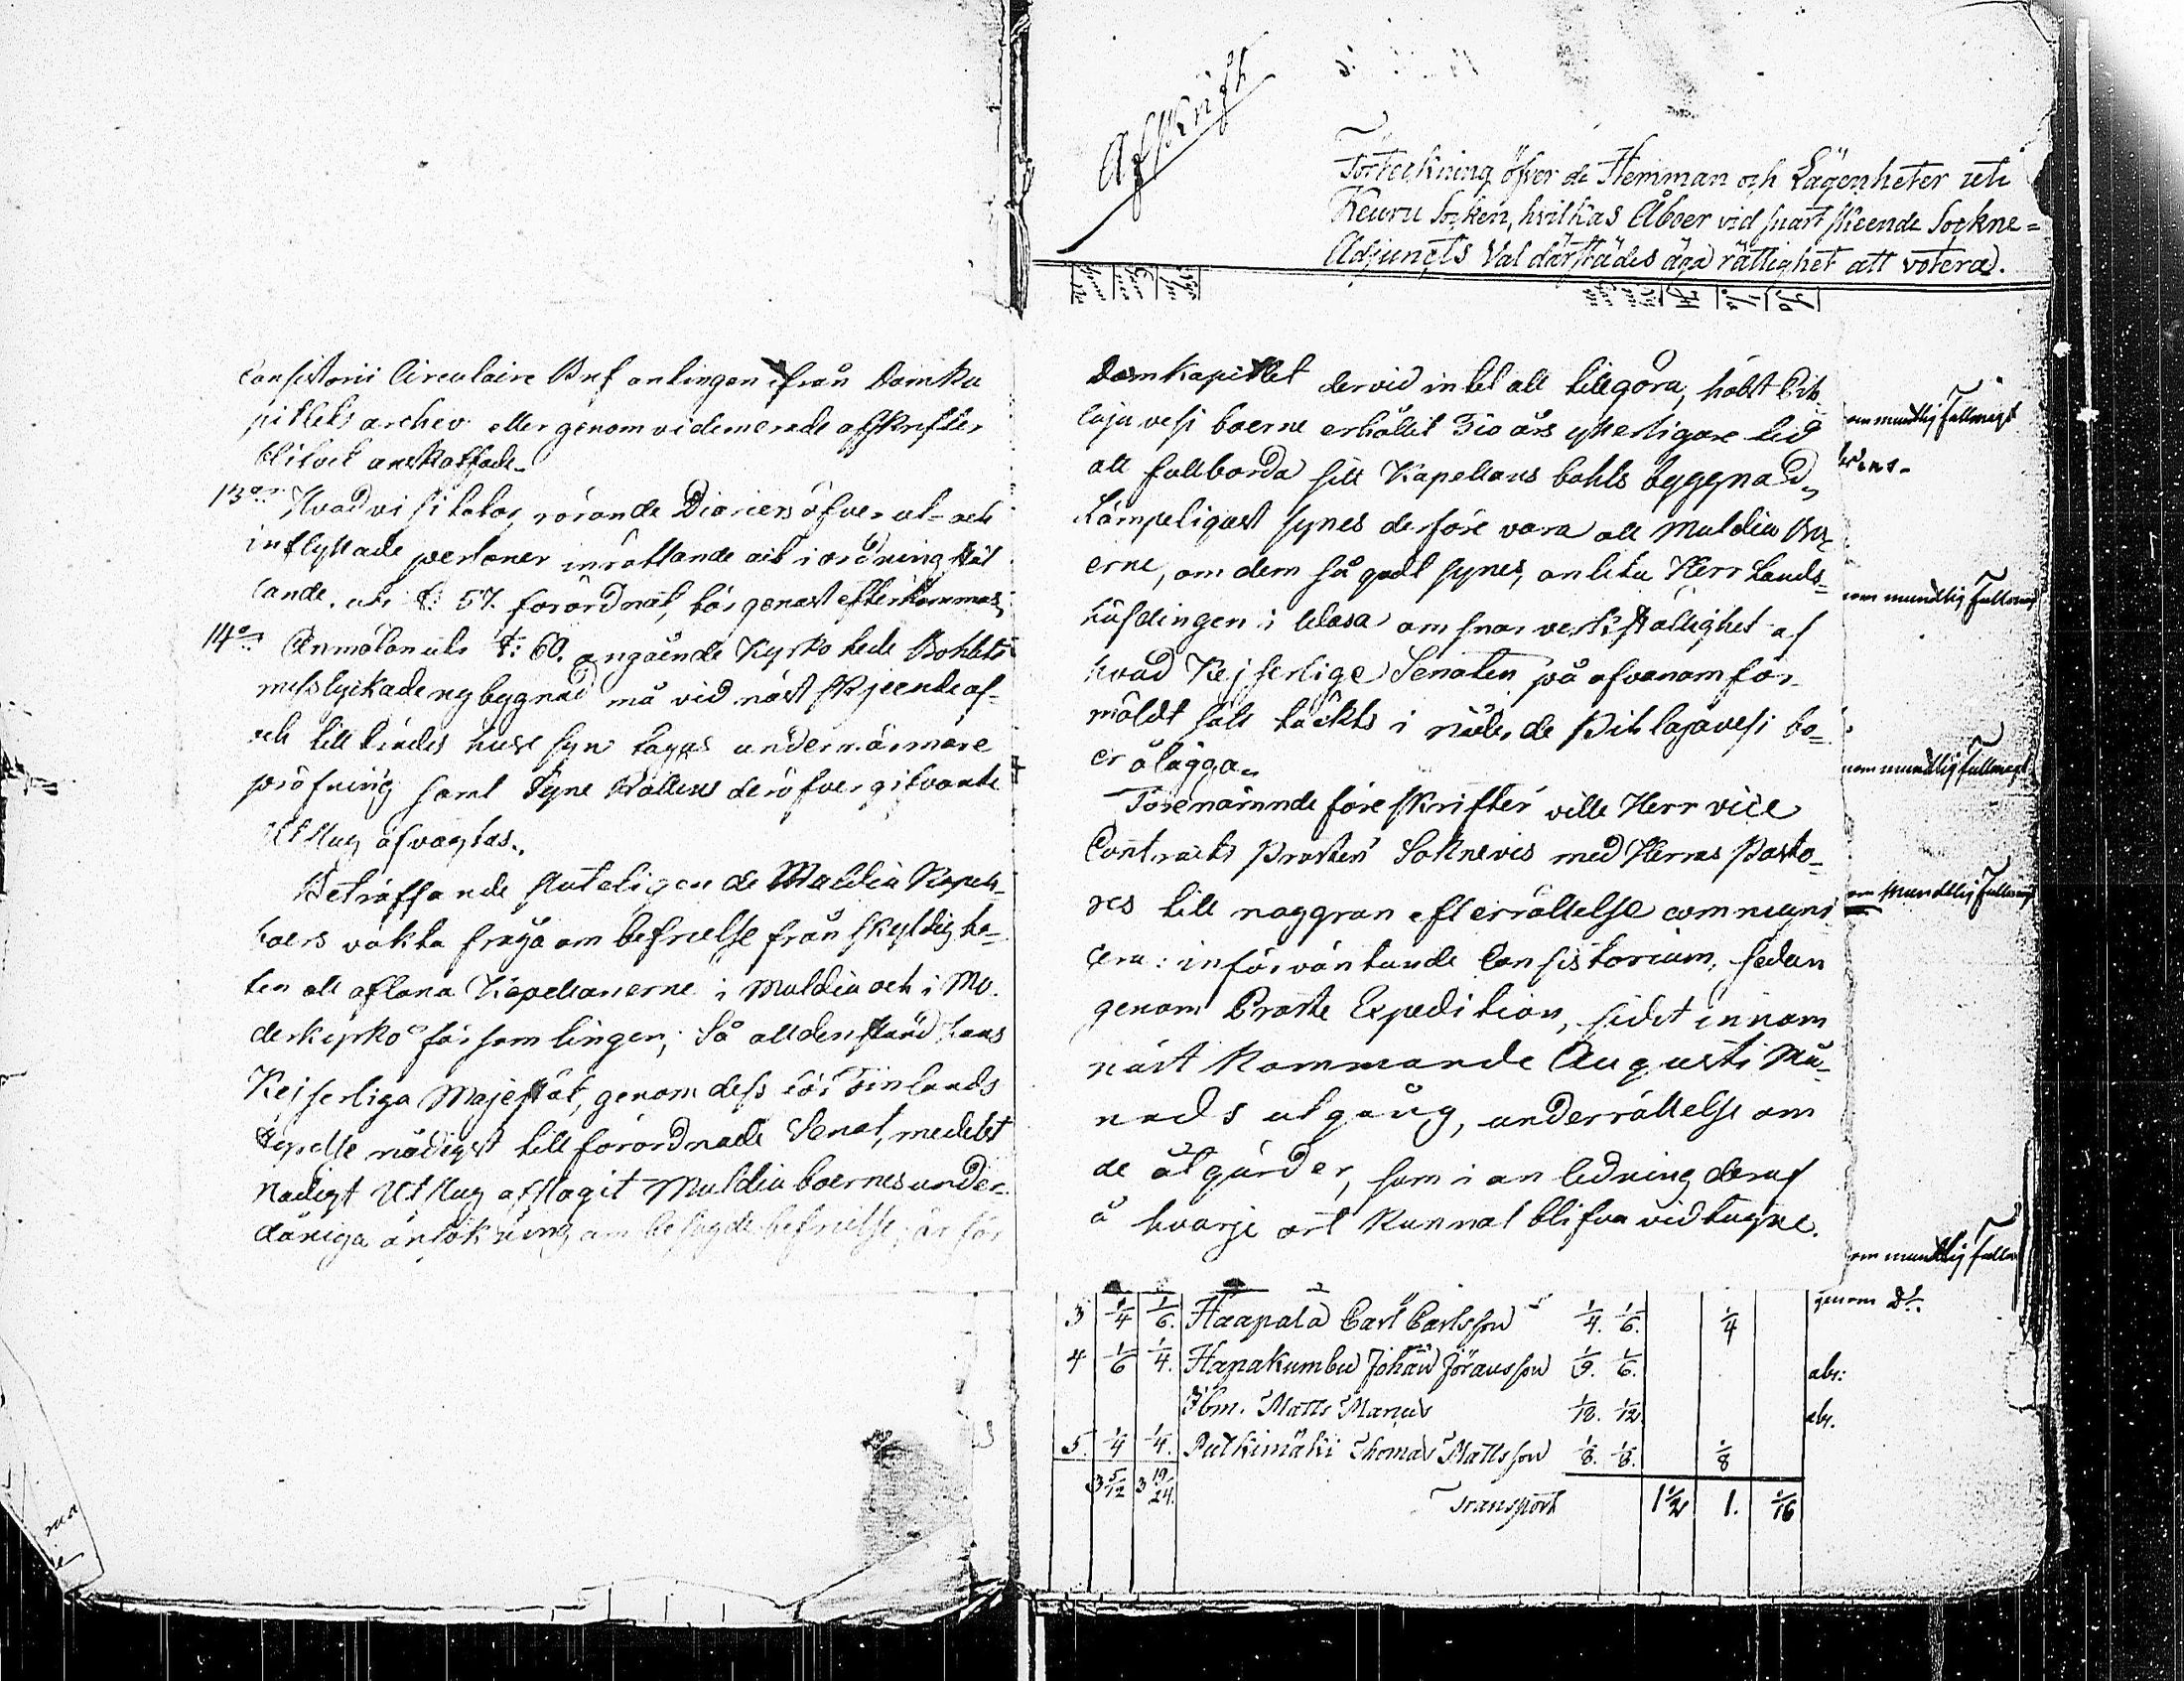 Consistorii Circulaire Bref antingen ifrån Domka
pitlets archev eller genom videmerade afskrifter
blifvit anskaffade.
13o Hvad visitator, rörande Diariers öfver ut- och
inflyttade personer inrättande och i ordning häl
lande, uti §: 57. förordnat, bör genast efterkommas,
14o Anmälan uti §: 60. angående Kyrko herde Bohlets
misslyckade nybyggnad må vid näst skjeende af-
och till trädes huse syn tagas under närmare
pröfning samt Syne Rättens deröfver gifvande
Utslag afvagtas.
Beträffande sluteligen de Muldia Kapell-
boers väkta fråga om befrielse från skyldighe-
ten att aflöna Kapellanerne i Muldia och i Mo-
derkyrko församlingen; Så alldenstund Hans
Kejserliga Majestät, genom dess för Finlands
styrelse nådigst till förordnade Senat, medelst
Nådigt Utslag afslagit Muldia boernes under-
dåniga ansökning om besagde befrielse, är för
Afskrift
Förteckning öfver de Hemman och Lägenheter uti
Keuru Socken, hvilkas Åboer vid snart skeende Sockne=
Adjuncts Val därstädes äga rättighet att votera.
Domkapitlet dervid intet att tillgöra, hälst Pih
lajavesi boerne erhållit Tio års ytterligare tid
att fullborda sitt Kapellans bohls byggnad,
Lämpeligast synes derföre vara att Muldia Bo-
erne, om dem så godt synes, anlita Herr Lands-
höfdingen i Wasa om snar verkställighet af
hvad Kejserlige Senaten på ofvanom för-
mäldt sätt täckts i nåder de Pihlajavesi bo-
er ålägga.
Förenämnde föreskrifter ville Herr vice
Contracts Prosten Soknevis med Herrar Pasto-
res till noggran efterrättelse communi
cera: införväntande Consistorium, sedan
genom Proste Expedition, sidst innom
näst Kommande Augusti Må-
nads utgång, underrättelse om
de åtgärder, som i anledning deraf
å hvarje ort kunnat blifva vidtagne.
om mundtlig Fullmagt
om mundtlig Fullmagt
om mundtlig fullmagt
om Mundtlig Fullmagt
om mundtlig fullm
3 1/4 1/6. Haapala Carl Carlsson 1/4. 1/6. 1/4 genom Do.
4 1/6 1/4. Hapakumbu Johan Jöransson 1/9. 1/6. abs:
Ibm. Matts Marcus 1/18. 1/12 abs.
5. 1/4 1/4. Putkimäki Thomas Mattsson 1/8. 1/8. 1/8
3 5/12 3 19/24. Transport 1 1/2 1. 1/16